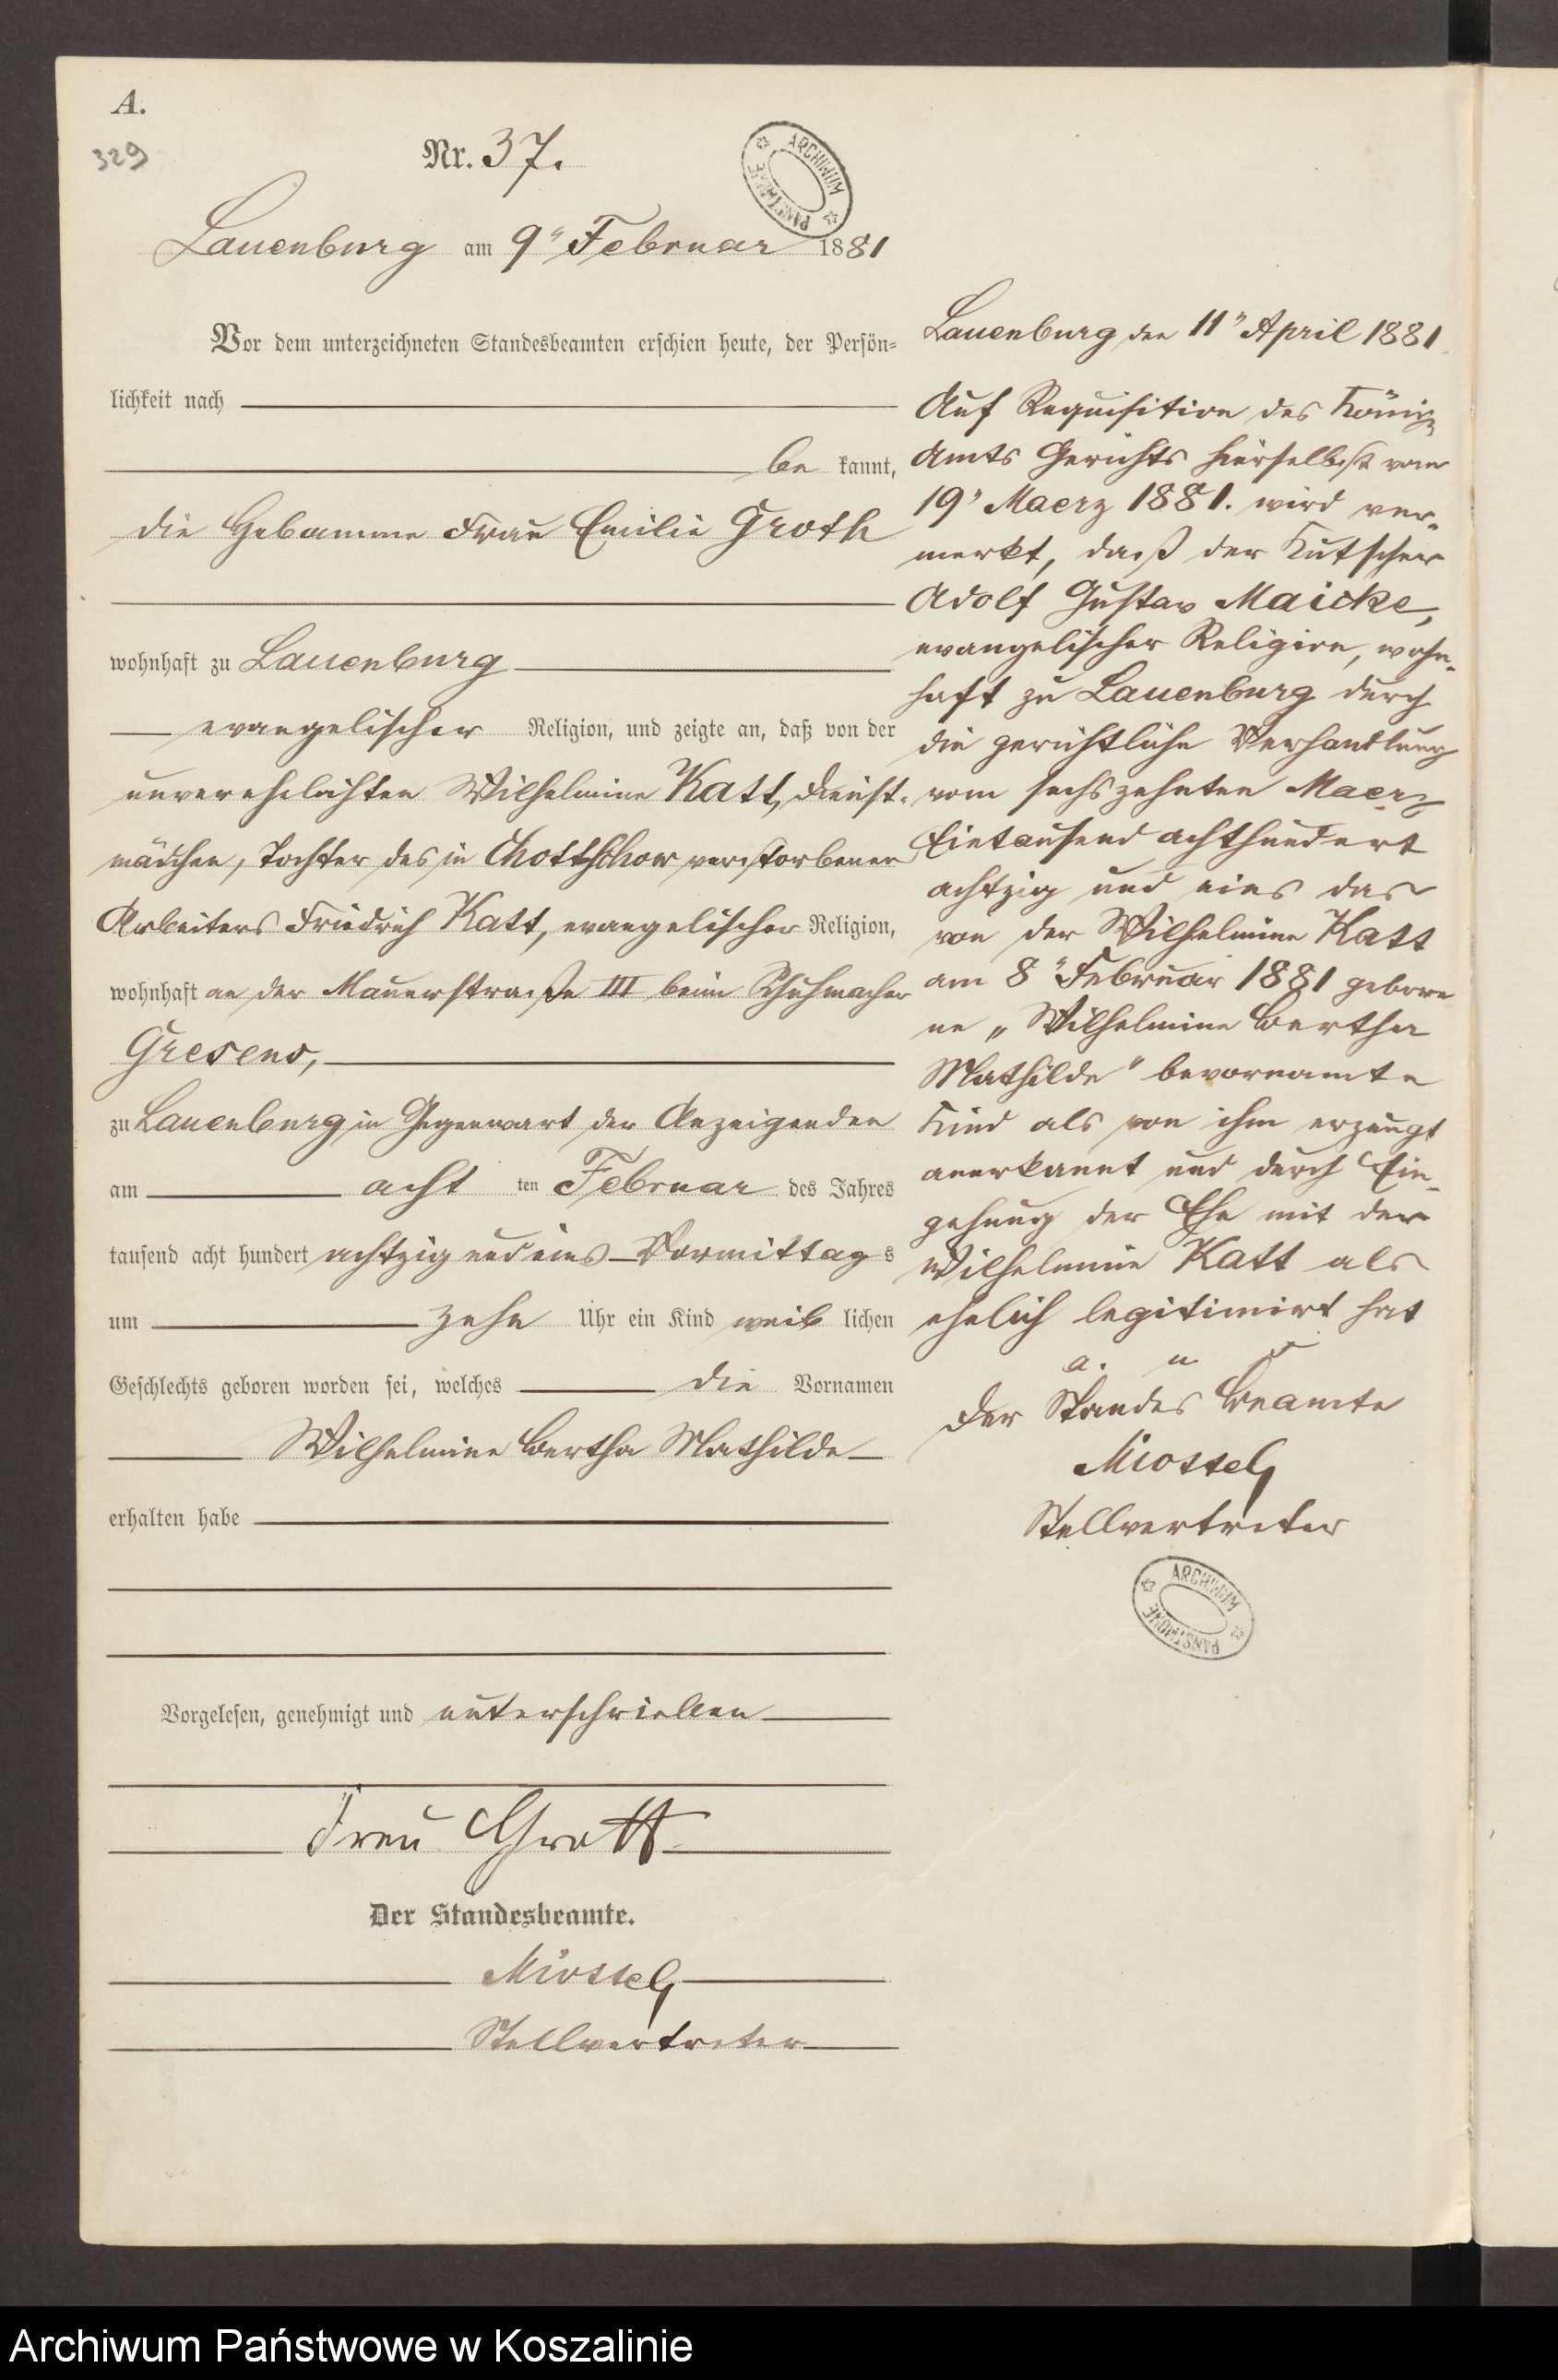 A.
329
Nr. 37.
ARCHIWUM PAŃSTWOWE
Lauenburg am 9" Februar 1881
Vor dem unterzeichneten Standesbeamten erschien heute, der Persön=
lichkeit nach
be kannt,
die Hebamme Frau Emilie Groth
wohnhaft zu Lauenburg
evangelischer Religion, und zeigte an, daß von der
unverehelichten Wilhelmine Katt, Dienst-
mädchen, Tochter des in Chottschow verstorbenen
Arbeiters Friedrich Katt, evangelischer Religion,
wohnhaft an der Mauerstraße III beim Schuhmacher
Gresens,
zu Lauenburg in Gegenwart der Anzeigenden
am acht ten Februar des Jahres
tausend acht hundert achtzig und eins Vormittag s
um zehn Uhr ein Kind weib lichen
Geschlechts geboren worden sei, welches die Vornamen
Wilhelmine Bertha Mathilde
erhalten habe
Vorgelesen, genehmigt und unterschrieben
Frau Grott
Der Standesbeamte.
Stellvertreter
Lauenburg den 11" April 1881
Auf Requisition des Königl
Amts Gerichts hierselbst vom
19" Maerz 1881. wird ver-
merkt, daß der Kutscher
Adolf Gustav Maicke,
evangelischer Religion, wohn-
haft zu Lauenburg durch
die gerichtliche Verhandlung
vom sechszehnten Maerz
Eintausend achthundert
achtzig und eins das
von der Wilhelmine Katt
am 8" Februar 1881 gebore-
ne „Wilhelmine Bertha
Mathilde" bevornamte
Kind als von ihm erzeugt
anerkannt und durch Ein-
gehung der Ehe mit der
Wilhelmine Katt als
ehelich legitimirt hat
a. u. s
Der Standes Beamte
Stellvertreter
ARCHIWUM PAŃSTWOWE
Archiwum Państwowe w Koszalinie